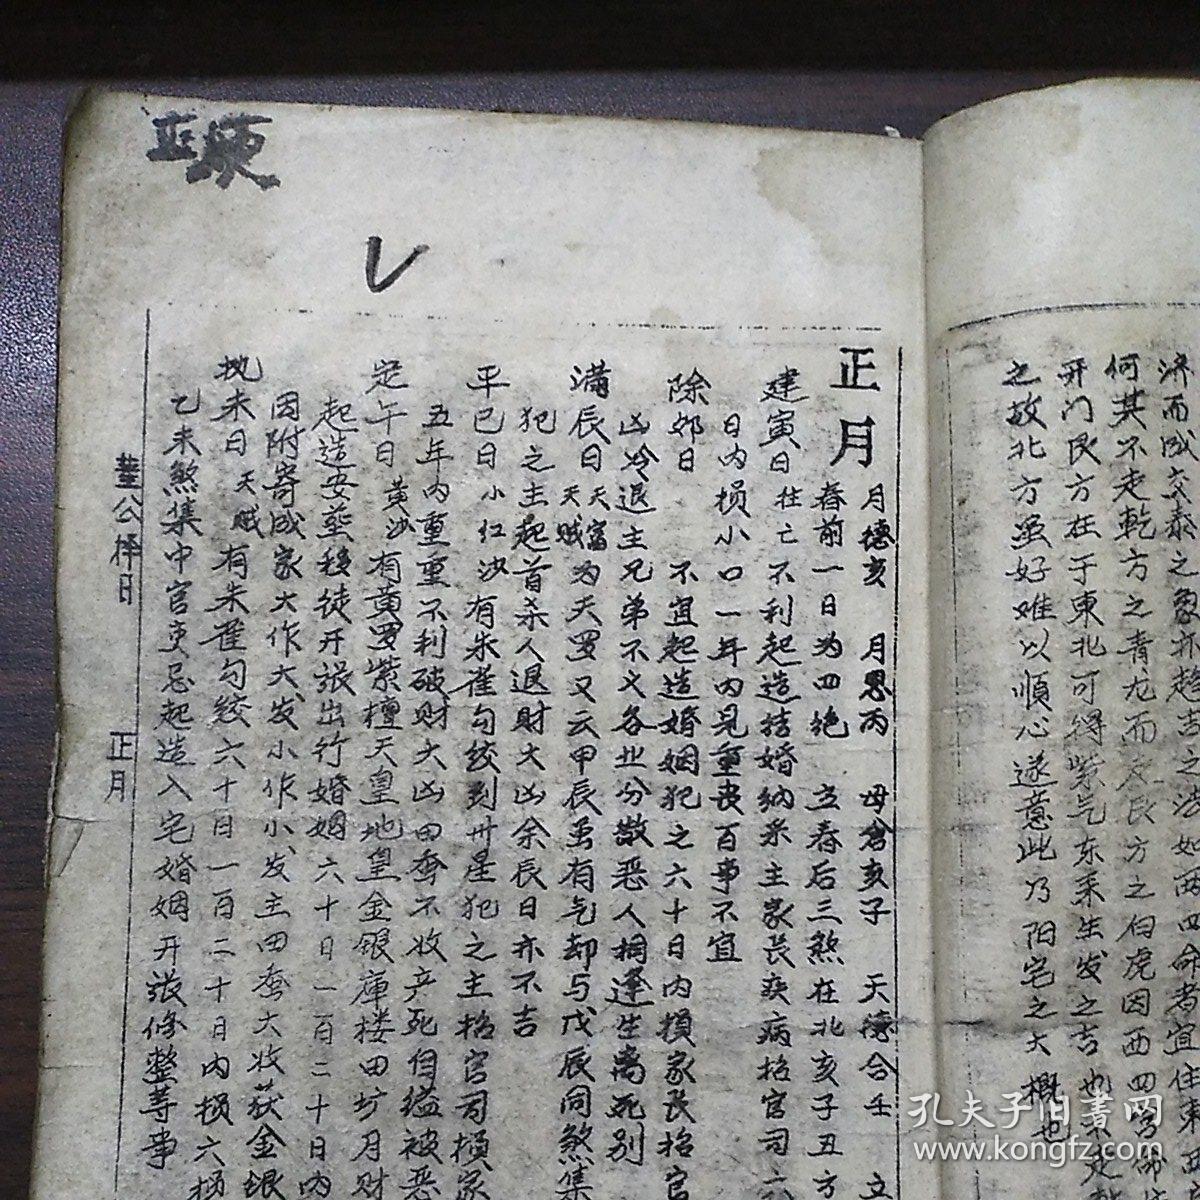 济而成交泰之象抑趋吉之法如西四命者宜住東
何其不走乾方之青龙而友辰方之白虎因西四
开门艮方在于東北可得紫气东来生发之吉也
之故北方虽好难以順心遂意此乃阳宅之大概也
正月 月德亥 月恩丙 母倉亥子 天德合壬 立
春前一日为四绝 立春后三煞在北亥子丑方
建寅日 往亡 不利起造结婚纳采主家长疾病招官司六
日内损小口一年内見重丧百事不宜
除卯日 不宜起造婚姻犯之六十日内損家長招官
凶冷退主兄弟不义各业分散恶人相逢生离死别
满辰日 天富 天贼 为天罗又云甲辰虽有气却与戊辰同煞集
犯之主起首杀人退财大凶余辰日亦不吉
平巳日 小红沙 有朱雀勾绞到州星犯之主招官司損家
五年内重重不利破财大凶田蚕不收产死自缢被恶
定午日 黄沙 有黄罗紫檀天皇地皇金銀庫楼田圹月财
起造安葬移徒开張出行婚姻六十日一百二十日内
因附寄成家大作大发小作小发主田蚕大收获金银
执未日 天贼 有朱雀勾绞六十日一百二十日内损六
乙未煞集中宫亥忌起造入宅婚姻开張修整等事
董公择日
正月
孔夫子旧書网
www.kongfz.com